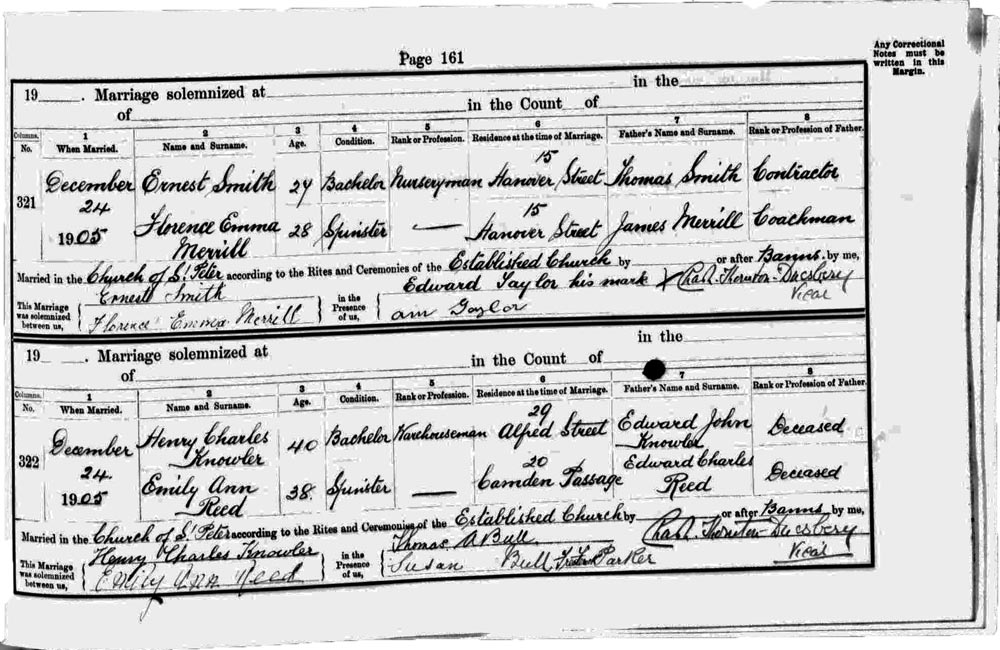 Page 161
Any Correctional
Notes must be
written in this
Margin.
19 . Marriage solemnized at in the
of in the Count of
Columns. 1 2 3 4 5 6 7 8
No. When Married. Name and Surname. Age. Condition. Rank or Profession. Residence at the time of Marriage. Father's Name and Surname. Rank or Profession of Father.
321 December 24 1905 Ernest Smith 27 Bachelor Nurseryman 15 Hanover Street Thomas Smith Contractor
Florence Emma Merrill 28 Spinster — 15 Hanover Street James Merrill Coachman
Married in the Church of St Peter according to the Rites and Ceremonies of the Established Church by or after Banns by me,
This Marriage was solemnized between us, Ernest Smith in the Presence of us, Edward Taylor his mark X Chas. Thornton
Florence Emma Merrill Vicar
19 . Marriage solemnized at in the
of in the Count of
Columns. 1 2 3 4 5 6 7 8
No. When Married. Name and Surname. Age. Condition. Rank or Profession. Residence at the time of Marriage. Father's Name and Surname. Rank or Profession of Father.
322 December 24. 1905 Henry Charles Knowler 40 Bachelor Warehouseman 29 Alfred Street Edward John Knowler Deceased
Emily Ann Reed 38. Spinster — 20 Camden Passage Edward Charles Reed Deceased
Married in the Church of St Peter according to the Rites and Ceremonies of the Established Church by or after Banns by me,
This Marriage was solemnized between us, Henry Charles Knowler in the Presence of us, Thomas A Bull Chas. Thornton
Emily Ann Reed Susan Bull Parker Vicar